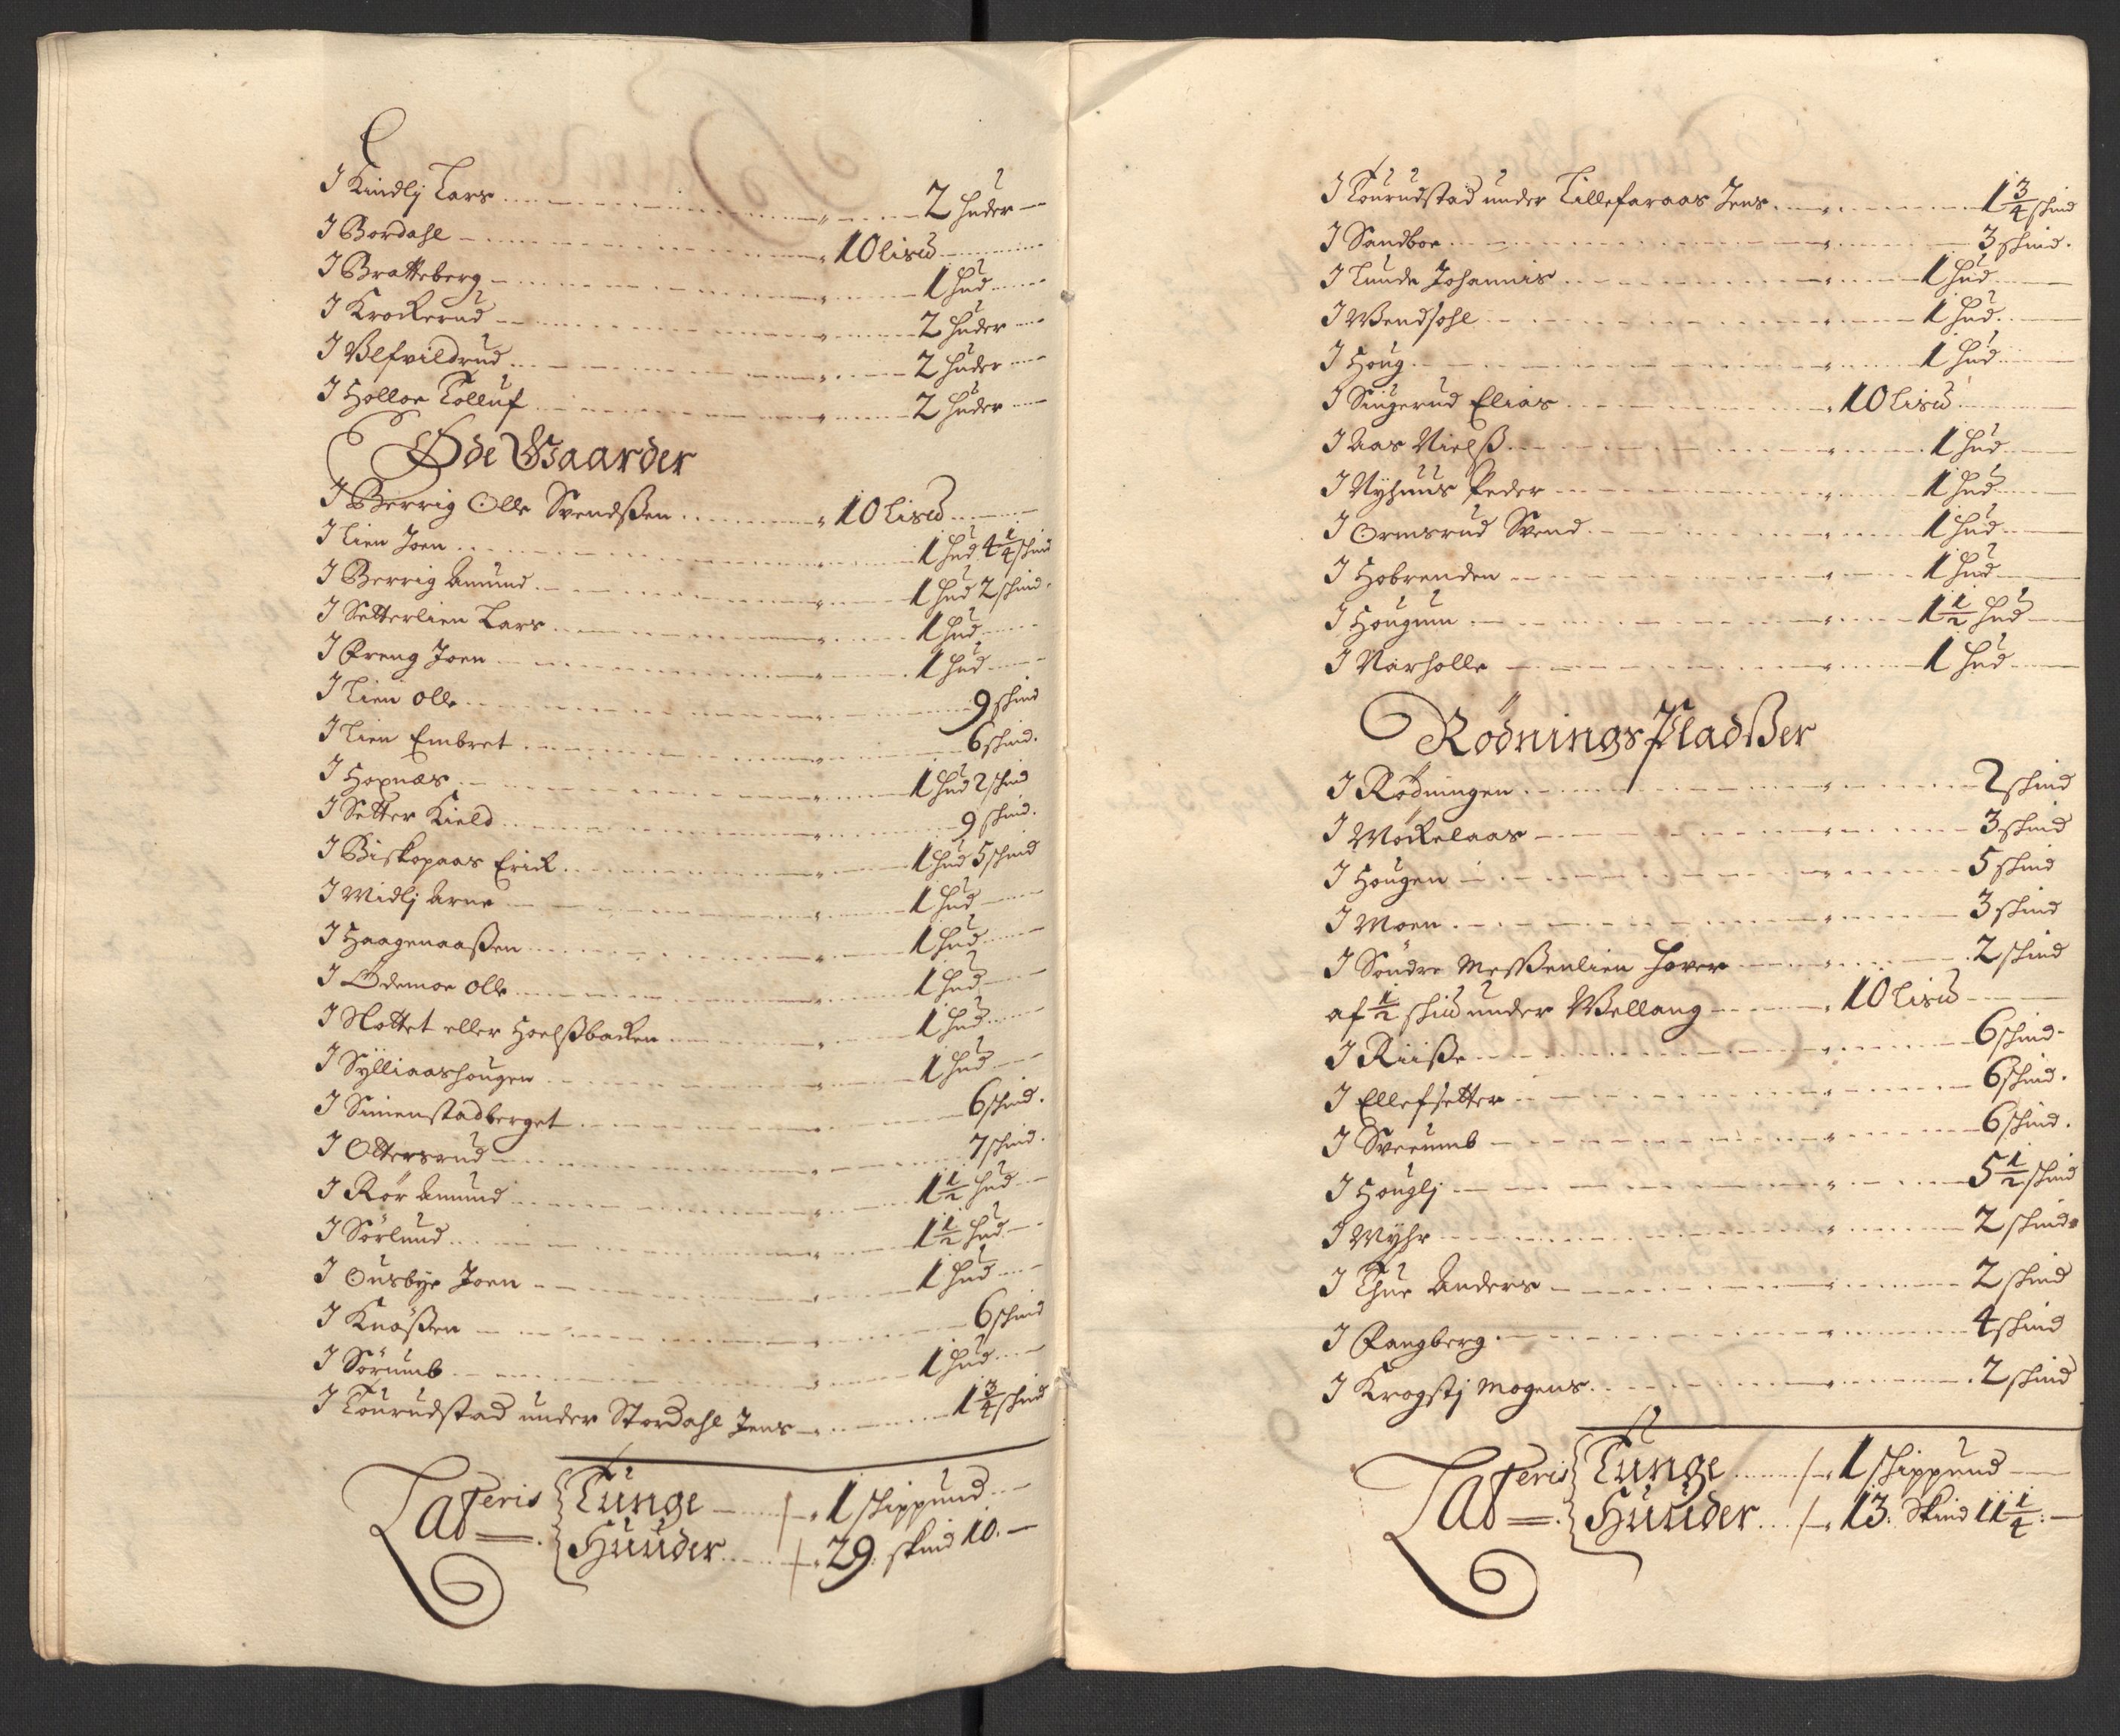 I Kindlj Lars 2 huder
I Bordahl 10 lis℔
I Bratteberg 1 hud
I Krokerud 2 huder
I Ulfvildrud 2 huder
I Holloe Tolluf 2 huder
Øde Gaarder
I Berrig Olle Svendßen 10 lis℔
I Lien Joen 1 hud 4 1/4 schind
I Berrig Amund 1 hud 2 schind.
I Setterlien Lars 1 hud
I Preng Joen 1 hud
I Lien Olle 9 schind
I Lien Embret 6 schind.
I Hopnæs 1 hud 2 schind
I Setter Kield 9 schind.
I Biskopaas Erick 1 hud 5 schind
I Midlj Arne 1 hud
I Haagenaaßen 1 hud
I Ødemoe Olle 1 hud
I Slottet eller Hoelßbacken 1 hud
I Sylliaashougen 1 hud
I Simenstadberget 6 schind.
I Ottersrud 7 schind.
I Rör Amund 1 1/2 hud
I Sörlund 1 1/2 hud
I Ousbye Joen 1 hud
I Knößen 6 schind
I Sörumb 1 hud
I Tourudstad under Stordahl Jens 1 3/4 schind
Lateris Tunge 1 schippund
Huuder 29. skind 10.
I Tourudstad under Lillefaraas Jens 1 3/4 schind
I Sandboe 3 schind.
I Lunde Johannis 1 hud
I Wendsohl 1 hud
I Houg 1 hud
I Singerud Elias 10 lis℔
I Aas Nielß 1 hud
I Nyhuus Peder 1 hud
I Ormsrud Svend 1 hud
I Hobrenden 1 hud
I Hougum 1 1/2 hud
I Narholle 1 hud
Rödnings Pladßer
I Rödningen 2 schind
I Mökelaas 3 schind
I Hougen 5 schind
I Moen 3 schind
I Söndre Meßßenlien Hover 2 schind
af 1/2 schi℔ under Wellang 10 lis℔
I Riiße 6 schind.
I Ellefsetter 6 schind.
I Sveeumb 6 schind.
I Houglj 5 1/2 schind
I Myhr 2 schind.
I Thue Anders 2 schind
I Rangberg 4 schind
I Krogstj Mogens 2 schind
Lateris Tunge 1 schippund
Huuder 13. Skind 11 1/4.